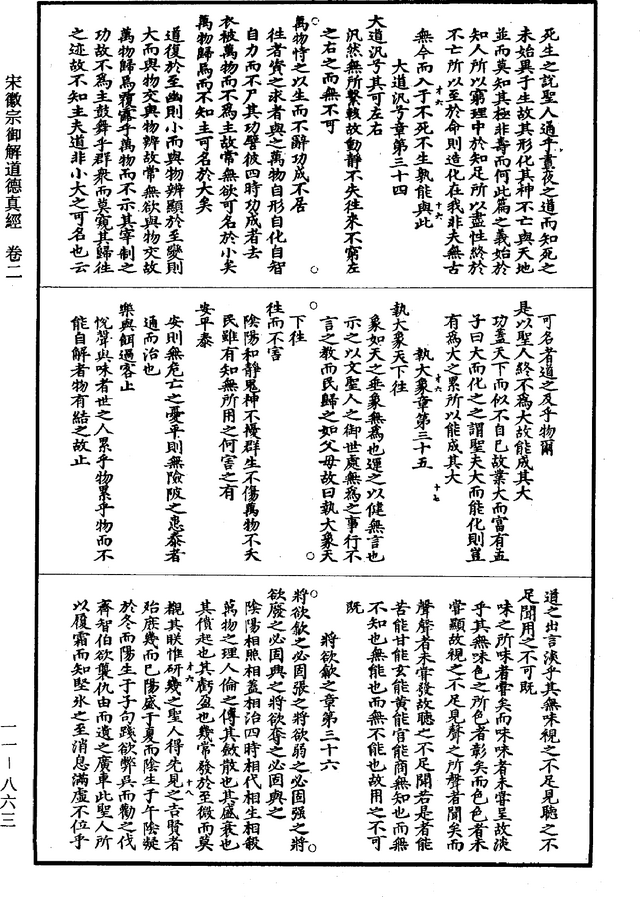 宋徽宗御解道德真經 卷二
死生之說聖人通乎晝夜之道而知死之
未始異于生故其形化其神不亡與天地
並而莫知其極非壽而何此篇之義始於
知人所以窮理中於知足所以盡性終於
不亡所以至於命則造化在我非夫無古
才六 十六
無今而入于不死不生孰能與此
大道汎兮章第三十四
大道汎兮其可左右
汎然無所繫輆故動靜不失往來不窮左
之右之而無不可
萬物恃之以生而不辭功成不居
往者資之求者與之萬物自形自化自智
自力而不尸其功譬彼四時功成者去
衣被萬物而不為主故常無欲可名於小矣
萬物歸焉而不知主可名於大矣
道復於至幽則小而與物辨顯於至變則
大而與物交與物辨故常無欲與物交故
萬物歸焉覆露乎萬物而不示其宰制之
功故不為主鼓舞乎群眾而莫窺其歸往
之迹故不知主夫道非小大之可名也云
可名者道之及乎物爾
是以聖人終不為大故能成其大
功蓋天下而似不自己故業大而富有孟
子曰大而化之之謂聖夫大而能化則豈
有為大之累所以能成其大
才六 十七
執大象章第三十五
執大象天下往
象如天之垂象無為也運之以健無言也
示之以文聖人之御世處無為之事行不
言之教而民歸之如父母故曰執大象天
下往
往而不害
陰陽和靜鬼神不擾群生不傷萬物不夭
民雖有知無所用之何害之有
安平泰
安則無危亡之憂平則無險陂之患泰者
通而治也
樂與餌過客止
悅聲與味者世之人累乎物累乎物而不
能自解者物有結之故止
道之出言淡乎其無味視之不足見聽之不
足聞用之不可既
味之所味者嘗矣而味味者未嘗呈故淡
乎其無味色之所色者彰矣而色色者未
嘗顯故視之不足見聲之所聲者聞矣而
聲聲者未嘗發故聽之不足聞若是者能
苦能甘能玄能黃能宮能商無知也而無
不知也無能也而無不能也故用之不可
既
將欲歙之章第三十六
將欲歙之必固張之將欲弱之必固強之將
欲廢之必固興之將欲奪之必固與之
陰陽相照相蓋相治四時相代相生相殺
萬物之理人倫之傳其斂散也其盛衰也
其僨起也其虧盈也幾常發於至微而莫
才六 十八
覩其眹惟研幾之聖人得先見之吉賢者
殆庶幾而已陽盛于夏而陰生于午陰凝
於冬而陽生于子句踐欲弊吳而勸之伐
齊智伯欲襲仇由而遺之廣車此聖人所
以履霜而知堅冰之至消息滿虛不位乎
一一—八六三